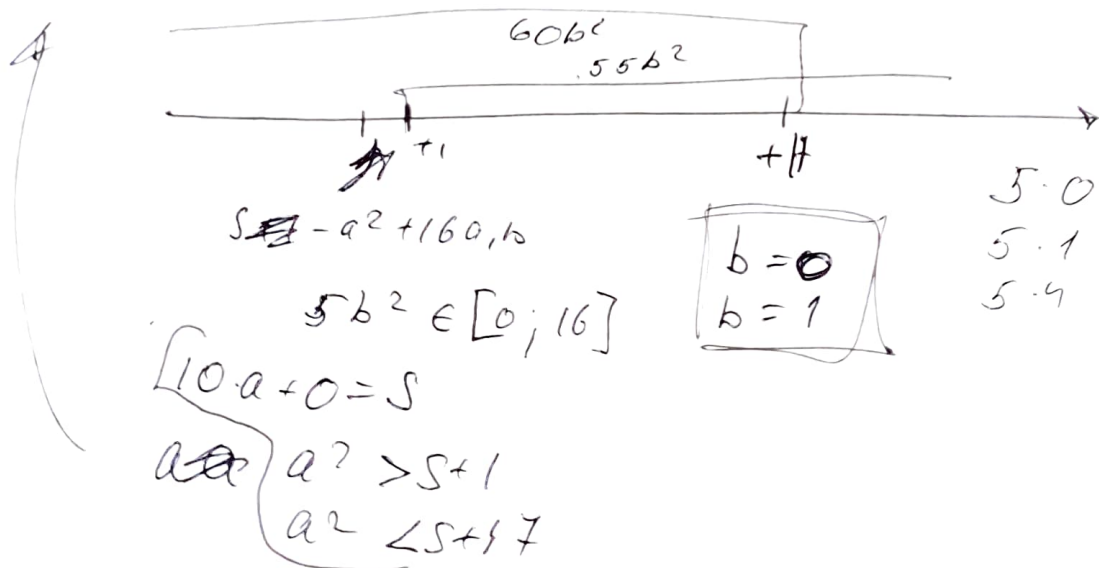 60b²
55b²
+1
+17
5·0
5·1
5·4
S - a² + 16a,b
b = 0
b = 1
5b² ∈ [0; 16]
10·a + 0 = S
a² > S+1
a² < S+17